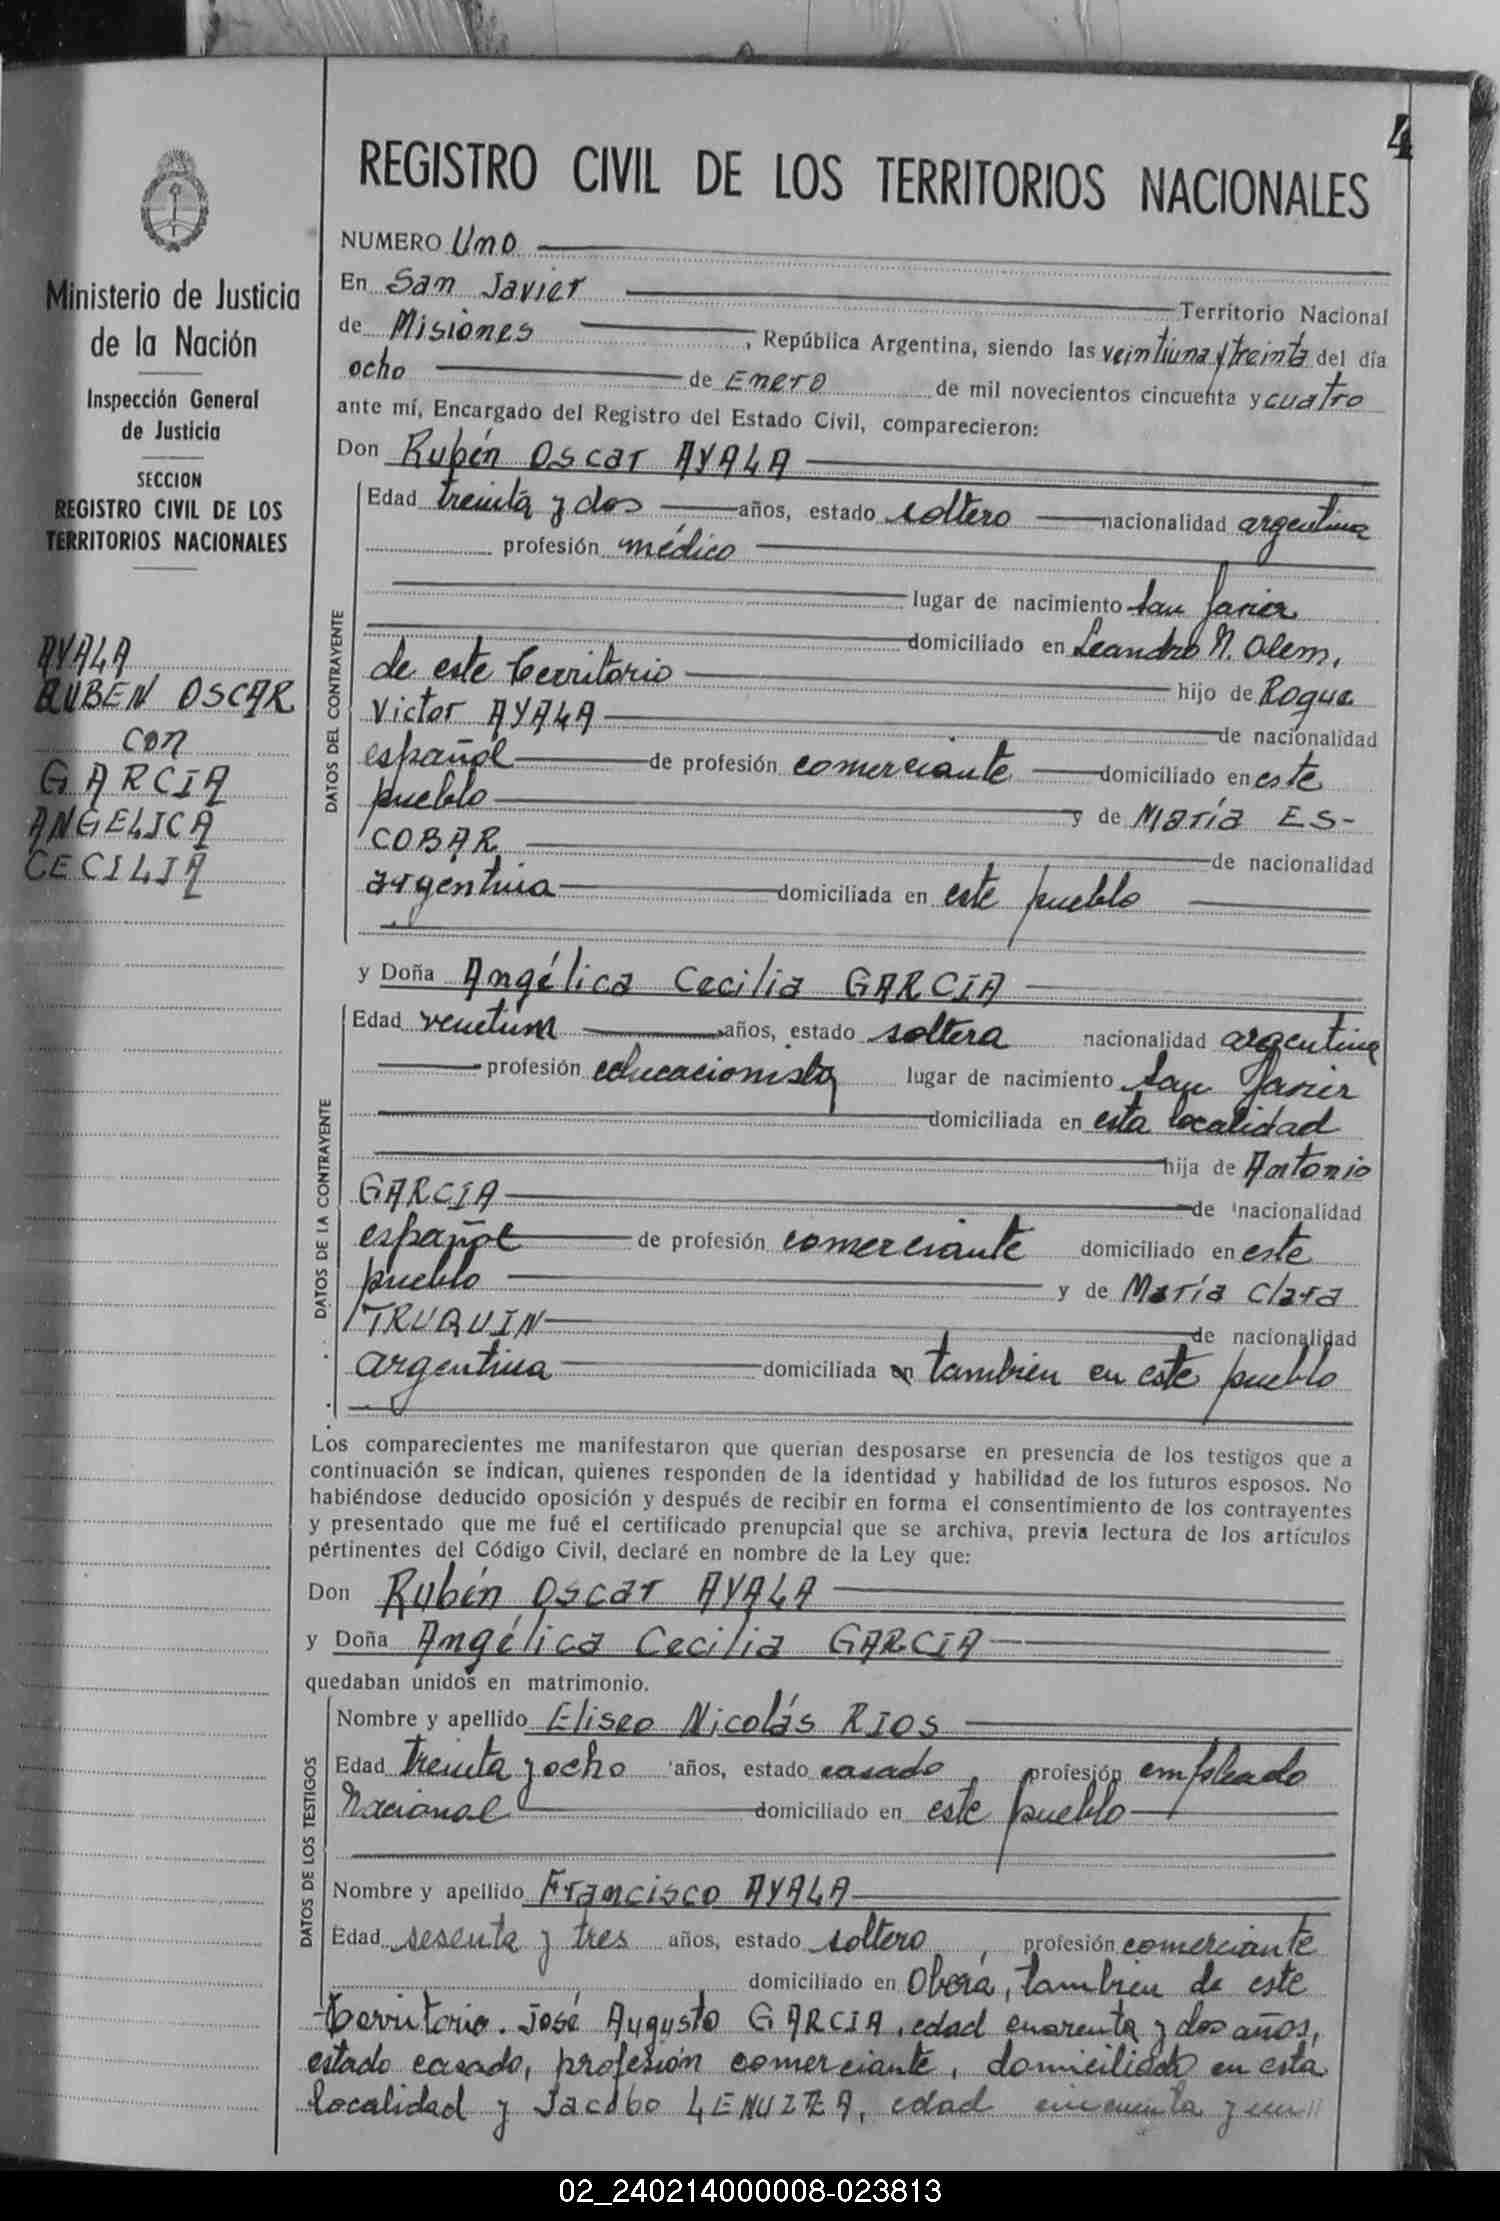 4
REGISTRO CIVIL DE LOS TERRITORIOS NACIONALES
Ministerio de Justicia
de la Nación
Inspección General
de Justicia
SECCION
REGISTRO CIVIL DE LOS
TERRITORIOS NACIONALES
AYALA
RUBEN OSCAR
con
GARCIA
ANGELICA
CECILIA
NUMERO Uno
En San Javier Territorio Nacional
de Misiones, República Argentina, siendo las veintiuna y treinta del día
ocho de Enero de mil novecientos cincuenta y cuatro
ante mí, Encargado del Registro del Estado Civil, comparecieron:
Don Rubén Oscar AYALA
DATOS DEL CONTRAYENTE
Edad treinta y dos años, estado soltero nacionalidad argentina
profesión médico
lugar de nacimiento San Javier
domiciliado en Leandro N. Alem,
de este territorio hijo de Roque
Victor AYALA de nacionalidad
español de profesión comerciante domiciliado en este
pueblo y de María ES-
COBAR de nacionalidad
argentina domiciliada en este pueblo
y Doña Angélica Cecilia GARCIA
DATOS DE LA CONTRAYENTE
Edad veintiún años, estado soltera nacionalidad argentina
profesión educacionista lugar de nacimiento San Javier
domiciliada en esta localidad
hija de Antonio
GARCIA de nacionalidad
español de profesión comerciante domiciliado en este
pueblo y de María Clara
TRUQUIN de nacionalidad
argentina domiciliada en tambien en este pueblo
Los comparecientes me manifestaron que querían desposarse en presencia de los testigos que a
continuación se indican, quienes responden de la identidad y habilidad de los futuros esposos. No
habiéndose deducido oposición y después de recibir en forma el consentimiento de los contrayentes
y presentado que me fué el certificado prenupcial que se archiva, previa lectura de los artículos
pertinentes del Código Civil, declaré en nombre de la Ley que:
Don Rubén Oscar AYALA
y Doña Angélica Cecilia GARCIA
quedaban unidos en matrimonio.
DATOS DE LOS TESTIGOS
Nombre y apellido Eliseo Nicolás RIOS
Edad treinta y ocho años, estado casado profesión empleado
Nacional domiciliado en este pueblo
Nombre y apellido Francisco AYALA
Edad sesenta y tres años, estado soltero, profesión comerciante
domiciliado en Oberá, tambien de este
territorio. José Augusto GARCIA, edad cuarenta y dos años,
estado casado, profesión comerciante, domiciliado en esta
localidad y Jacobo, edad cincuenta y un
02_240214000008-023813